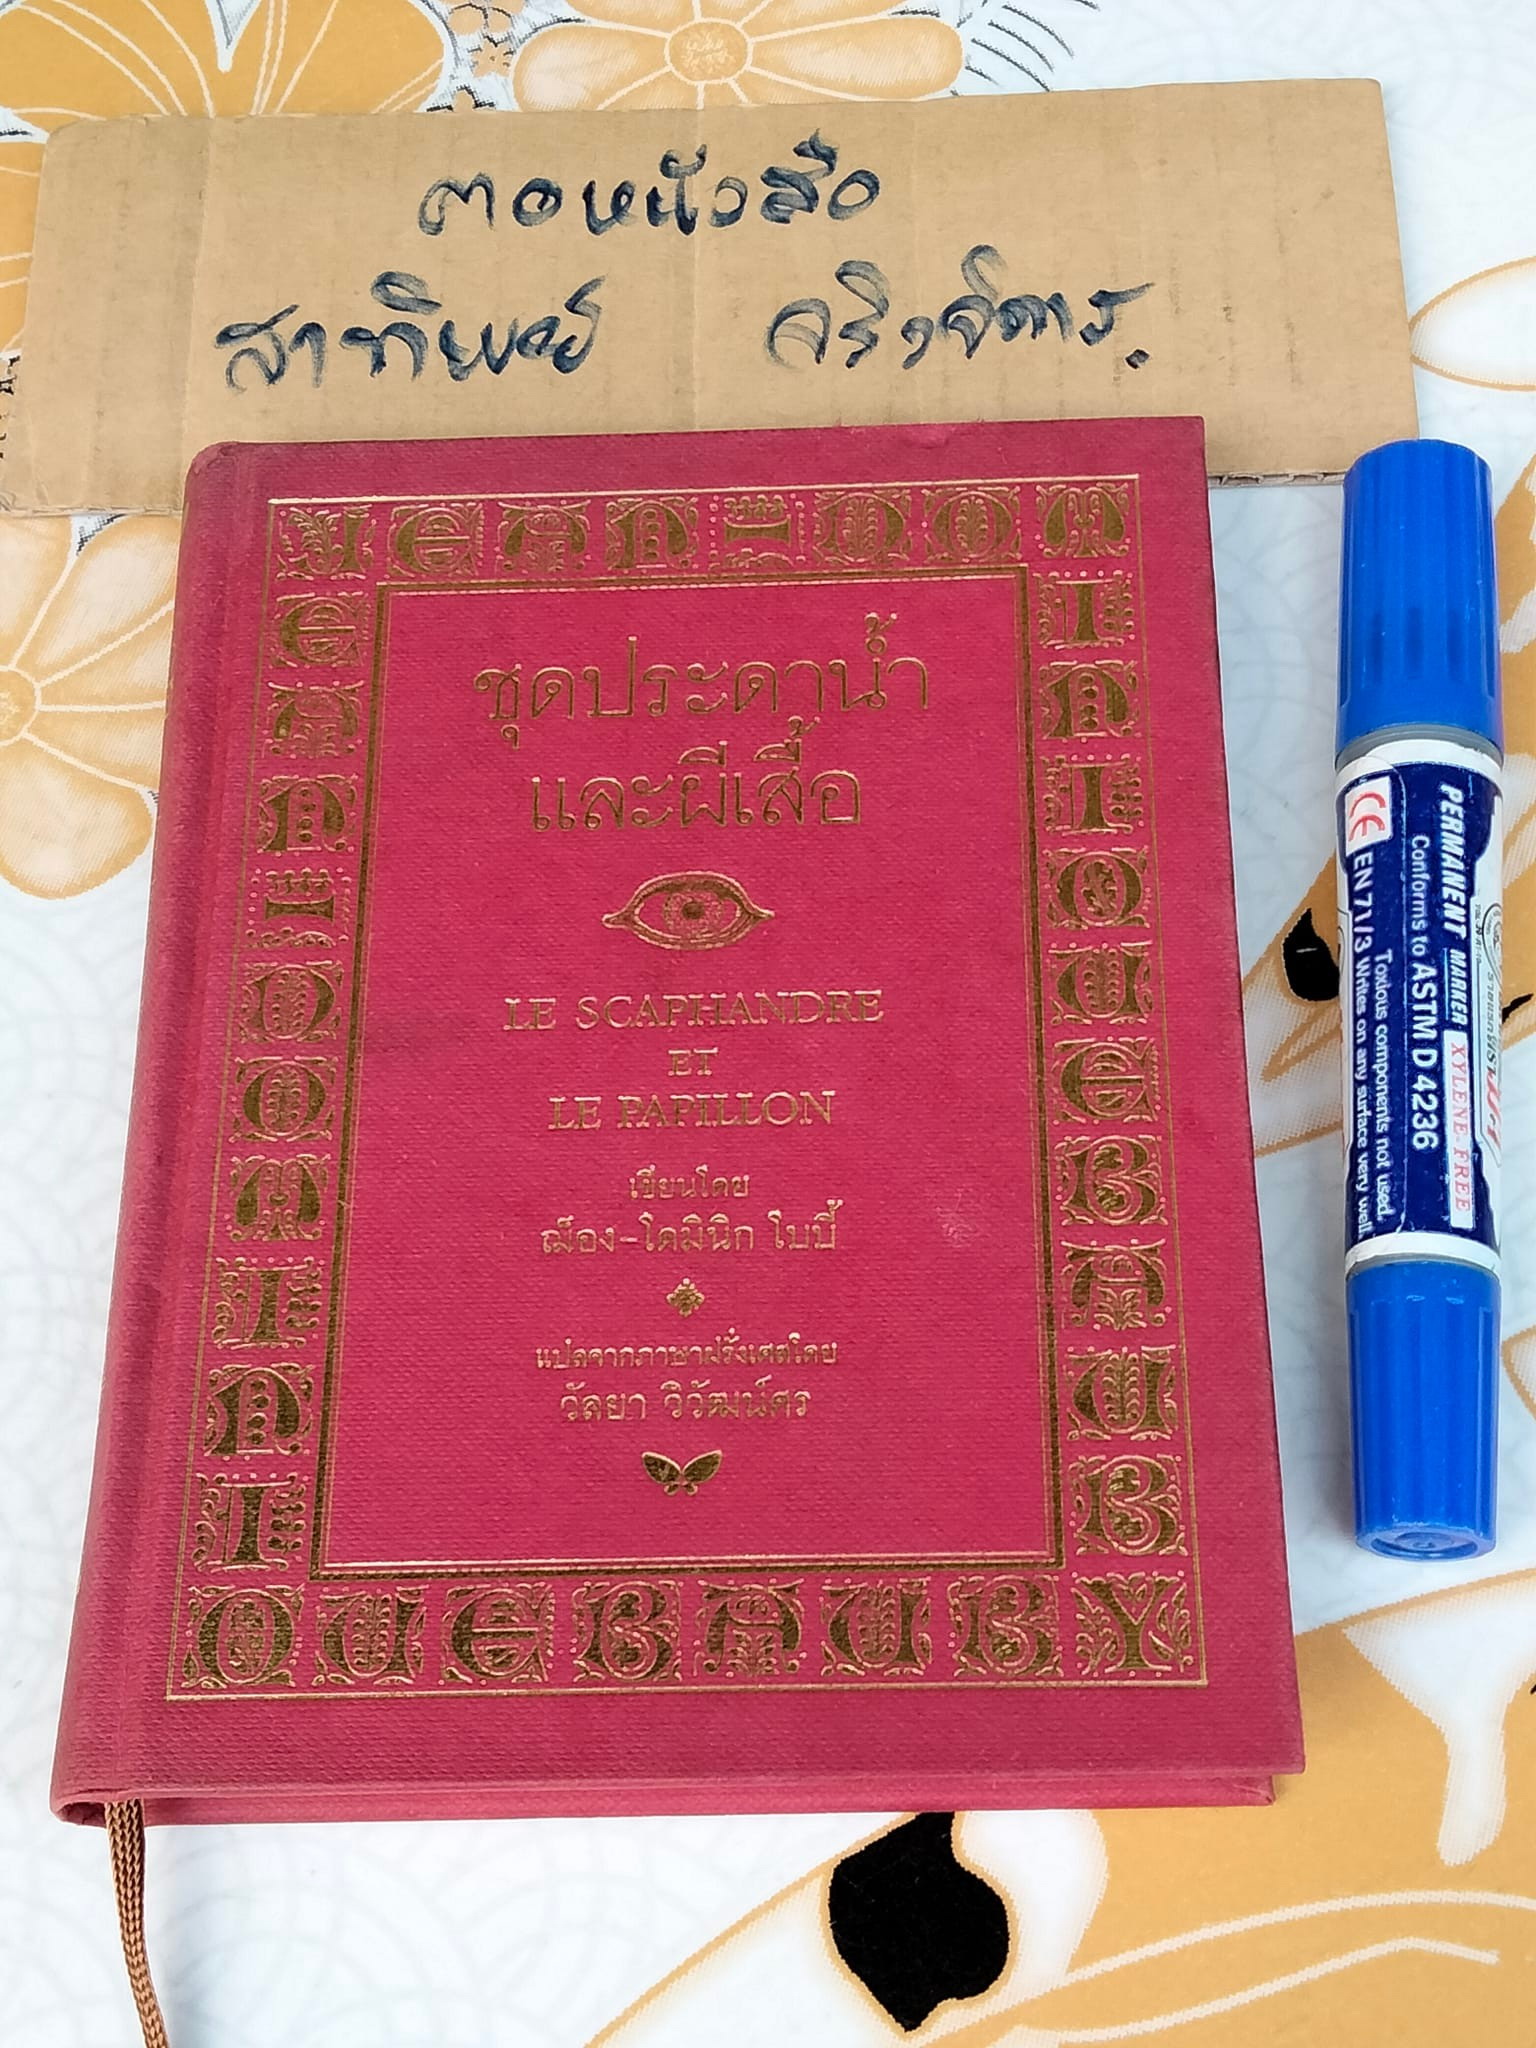 ตอหนังสือ
สาทิพย์ จริงจิตาร.
JEAN-DOMINIQUE BAUBY
JEAN-DOMINIQUE BAUBY
ชุดประดาน้ำ
และผีเสื้อ
LE SCAPHANDRE
ET
LE PAPILLON
เขียนโดย
ฌ็อง-โดมินิก โบบี้
แปลจากภาษาฝรั่งเศสโดย
วัลยา วิวัฒน์ศร
PERMANENT MARKER XYLENE-FREE
Conforms to ASTM D 4236
Toxious components not used.
CE EN 71/3 Writes on any surface very well.
ตราม้า